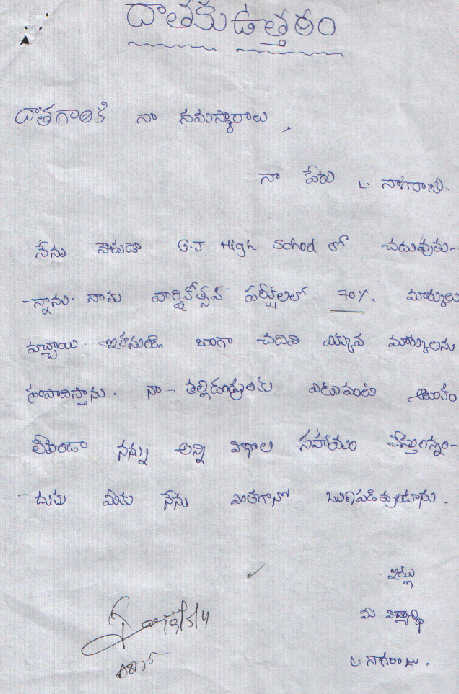 దాతకు ఉత్తరం
దాతగారికి నా నమస్కారాలు,
నా పేరు L. నాగరాజు.
నేను G.J High School లో చదువుతు-
-న్నాను. నాకు పరీక్షలలో 70% మార్కులు
వచ్చాయి. బాగా చదివి ఎక్కువ మార్కులను
సంపాదిస్తాను. నా తల్లిదండ్రులకు ఎటువంటి ఆటంకం
లేకుండా నన్ను అన్ని విధాల సహాయం చేస్తున్నం-
దుకు మీకు నేను ఎంతగానో ఋణపడివుంటాను.
ఇట్లు
మీ విద్యార్థి
L నాగరాజు.